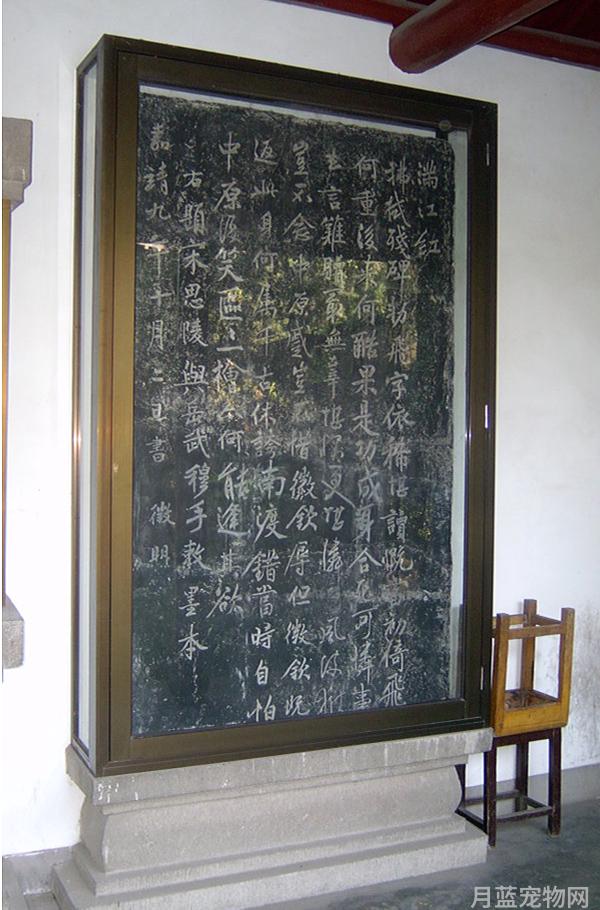 滿江紅
拂拭殘碑勅飛字依稀堪讀慨當初倚飛
何重後來何酷果是功成身合死可憐事
去言難贖最無辜堪恨更堪憐風波獄
豈不念中原蹙豈不惜徽欽辱但徽欽既
返此身何屬千古休誇南渡錯當時自怕
中原復笑區〻一檜亦何能逢其欲
右題宋思陵與岳武穆手敕墨本
嘉靖九年十月二日書 徵明
月蓝宠物网